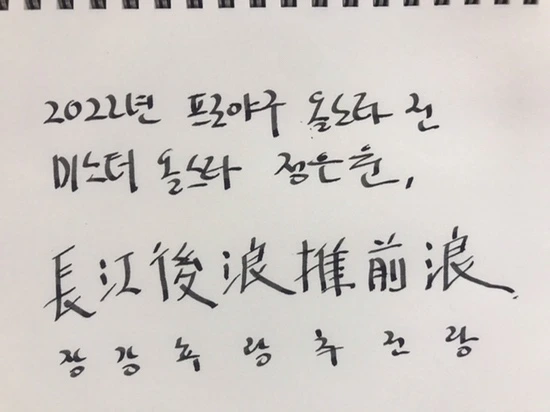 2022년 프로야구 올스타전
미스터 올스타 정은원,
長江後浪推前浪.
장강후랑추전랑